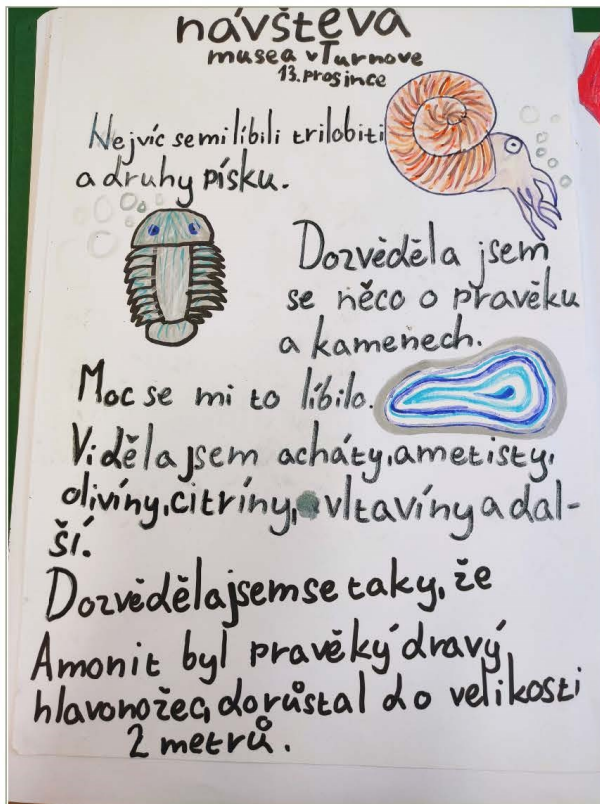 návštěva
musea v Turnove
13. prosince
Nejvíc se mi líbili trilobiti
a druhy písku.
Dozvěděla jsem
se něco o pravěku
a kamenech.
Moc se mi to líbilo.
Viděla jsem acháty, ametisty,
olivíny, citríny, vltavíny a dal-
ší.
Dozvěděla jsem se taky, že
Amonit byl pravěký dravý
hlavonožec, dorůstal do velikosti
2 metrů.